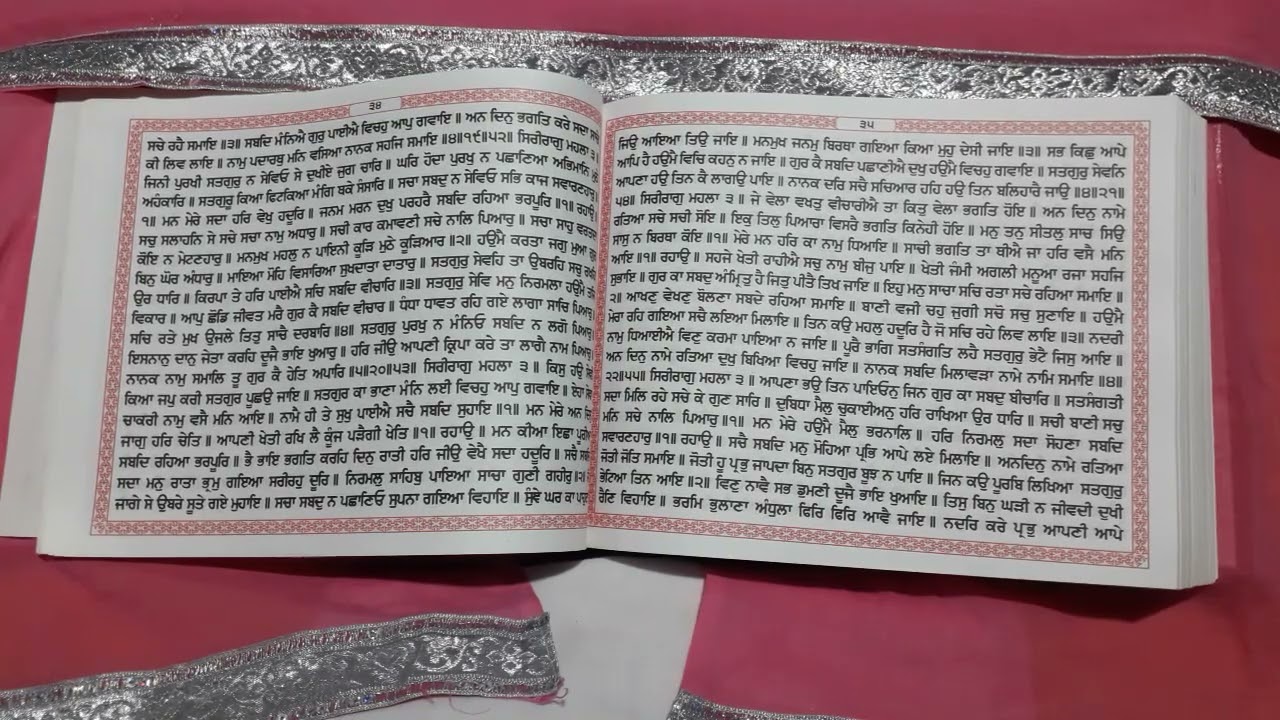 ੩੪
ਸਚੇ ਰਹੈ ਸਮਾਇ ॥੩॥ ਸਬਦਿ ਮੰਨਿਐ ਗੁਰੁ ਪਾਈਐ ਵਿਚਹੁ ਆਪੁ ਗਵਾਇ ॥ ਅਨ ਦਿਨੁ ਭਗਤਿ ਕਰੇ ਸਦਾ
ਕੀ ਲਿਵ ਲਾਇ ॥ ਨਾਮੁ ਪਦਾਰਥੁ ਮਨਿ ਵਸਿਆ ਨਾਨਕ ਸਹਜਿ ਸਮਾਇ ॥੪॥੧੯॥੫੨॥ ਸਿਰੀਰਾਗੁ ਮਹਲਾ ੩
ਜਿਨੀ ਪੁਰਖੀ ਸਤਗੁਰੁ ਨ ਸੇਵਿਓ ਸੇ ਦੁਖੀਏ ਜੁਗ ਚਾਰਿ ॥ ਘਰਿ ਹੋਦਾ ਪੁਰਖੁ ਨ ਪਛਾਣਿਆ ਅਭਿਮਾਨਿ
ਅਹੰਕਾਰਿ ॥ ਸਤਗੁਰੂ ਕਿਆ ਫਿਟਕਿਆ ਮੰਗਿ ਥਕੇ ਸੰਸਾਰਿ ॥ ਸਚਾ ਸਬਦੁ ਨ ਸੇਵਿਓ ਸਭਿ ਕਾਜ ਸਵਾਰਣਹਾਰੁ
੧॥ ਮਨ ਮੇਰੇ ਸਦਾ ਹਰਿ ਵੇਖੁ ਹਦੂਰਿ ॥ ਜਨਮ ਮਰਨ ਦੁਖੁ ਪਰਹਰੈ ਸਬਦਿ ਰਹਿਆ ਭਰਪੂਰਿ ॥੧॥ ਰਹਾਉ
ਸਚੁ ਸਲਾਹਨਿ ਸੇ ਸਚੇ ਸਚਾ ਨਾਮੁ ਅਧਾਰੁ ॥ ਸਚੀ ਕਾਰ ਕਮਾਵਣੀ ਸਚੇ ਨਾਲਿ ਪਿਆਰੁ ॥ ਸਚਾ ਸਾਹੁ
ਕੋਇ ਨ ਮੇਟਣਹਾਰੁ ॥ ਮਨਮੁਖ ਮਹਲੁ ਨ ਪਾਇਨੀ ਕੂੜਿ ਮੁਠੇ ਕੂੜਿਆਰ ॥੨॥ ਹਉਮੈ ਕਰਤਾ ਜਗੁ ਮੁਆ
ਬਿਨੁ ਘੋਰ ਅੰਧਾਰੁ ॥ ਮਾਇਆ ਮੋਹਿ ਵਿਸਾਰਿਆ ਸੁਖਦਾਤਾ ਦਾਤਾਰੁ ॥ ਸਤਗੁਰੁ ਸੇਵਹਿ ਤਾ ਉਬਰਹਿ ਸਚੁ
ਉਰ ਧਾਰਿ ॥ ਕਿਰਪਾ ਤੇ ਹਰਿ ਪਾਈਐ ਸਚਿ ਸਬਦਿ ਵੀਚਾਰਿ ॥੩॥ ਸਤਗੁਰੁ ਸੇਵਿ ਮਨੁ ਨਿਰਮਲਾ ਹਉਮੈ
ਵਿਕਾਰ ॥ ਆਪੁ ਛੋਡਿ ਜੀਵਤ ਮਰੈ ਗੁਰ ਕੈ ਸਬਦਿ ਵੀਚਾਰ ॥ ਧੰਧਾ ਧਾਵਤ ਰਹਿ ਗਏ ਲਾਗਾ ਸਾਚਿ
ਸਚਿ ਰਤੇ ਮੁਖ ਉਜਲੇ ਤਿਤੁ ਸਾਚੈ ਦਰਬਾਰਿ ॥੪॥ ਸਤਗੁਰੁ ਪੁਰਖੁ ਨ ਮੰਨਿਓ ਸਬਦਿ ਨ ਲਗੋ
ਇਸਨਾਨੁ ਦਾਨੁ ਜੇਤਾ ਕਰਹਿ ਦੂਜੈ ਭਾਇ ਖੁਆਰੁ ॥ ਹਰਿ ਜੀਉ ਆਪਣੀ ਕ੍ਰਿਪਾ ਕਰੇ ਤਾ ਲਾਗੈ ਨਾਮ
ਨਾਨਕ ਨਾਮੁ ਸਮਾਲਿ ਤੂ ਗੁਰ ਕੈ ਹੇਤਿ ਅਪਾਰਿ ॥੫॥੨੦॥੫੩॥ ਸਿਰੀਰਾਗੁ ਮਹਲਾ ੩ ॥ ਕਿਸੁ ਹਉ
ਕਿਆ ਜਪੁ ਕਰੀ ਸਤਗੁਰ ਪੂਛਉ ਜਾਇ ॥ ਸਤਗੁਰ ਕਾ ਭਾਣਾ ਮੰਨਿ ਲਈ ਵਿਚਹੁ ਆਪੁ ਗਵਾਇ ॥ ਏਹਾ
ਚਾਕਰੀ ਨਾਮੁ ਵਸੈ ਮਨਿ ਆਇ ॥ ਨਾਮੈ ਹੀ ਤੇ ਸੁਖੁ ਪਾਈਐ ਸਚੈ ਸਬਦਿ ਸੁਹਾਇ ॥੧॥ ਮਨ ਮੇਰੇ ਅਨ
ਜਾਗੁ ਹਰਿ ਚੇਤਿ ॥ ਆਪਣੀ ਖੇਤੀ ਰਖਿ ਲੈ ਕੂੰਜ ਪੜੈਗੀ ਖੇਤਿ ॥੧॥ ਰਹਾਉ ॥ ਮਨ ਕੀਆ ਇਛਾ
ਸਬਦਿ ਰਹਿਆ ਭਰਪੂਰਿ ॥ ਭੈ ਭਾਇ ਭਗਤਿ ਕਰਹਿ ਦਿਨੁ ਰਾਤੀ ਹਰਿ ਜੀਉ ਵੇਖੈ ਸਦਾ ਹਦੂਰਿ ॥ ਸਚੈ
ਸਦਾ ਮਨੁ ਰਾਤਾ ਭ੍ਰਮੁ ਗਇਆ ਸਰੀਰਹੁ ਦੂਰਿ ॥ ਨਿਰਮਲੁ ਸਾਹਿਬੁ ਪਾਇਆ ਸਾਚਾ ਗੁਣੀ ਗਹੀਰੁ
ਜਾਗੇ ਸੇ ਉਬਰੇ ਸੂਤੇ ਗਏ ਮੁਹਾਇ ॥ ਸਚਾ ਸਬਦੁ ਨ ਪਛਾਣਿਓ ਸੁਪਨਾ ਗਇਆ ਵਿਹਾਇ ॥ ਸੁੰਞੇ ਘਰ ਕਾ
੩੫
ਜਿਉ ਆਇਆ ਤਿਉ ਜਾਇ ॥ ਮਨਮੁਖ ਜਨਮੁ ਬਿਰਥਾ ਗਇਆ ਕਿਆ ਮੁਹੁ ਦੇਸੀ ਜਾਇ ॥੩॥ ਸਭ ਕਿਛੁ ਆਪੇ
ਆਪਿ ਹੈ ਹਉਮੈ ਵਿਚਿ ਕਹਨੁ ਨ ਜਾਇ ॥ ਗੁਰ ਕੈ ਸਬਦਿ ਪਛਾਣੀਐ ਦੁਖੁ ਹਉਮੈ ਵਿਚਹੁ ਗਵਾਇ ॥ ਸਤਗੁਰੁ ਸੇਵਨਿ
ਆਪਣਾ ਹਉ ਤਿਨ ਕੈ ਲਾਗਉ ਪਾਇ ॥ ਨਾਨਕ ਦਰਿ ਸਚੈ ਸਚਿਆਰ ਹਹਿ ਹਉ ਤਿਨ ਬਲਿਹਾਰੈ ਜਾਉ ॥੪॥੨੧॥
੫੪॥ ਸਿਰੀਰਾਗੁ ਮਹਲਾ ੩ ॥ ਜੇ ਵੇਲਾ ਵਖਤੁ ਵੀਚਾਰੀਐ ਤਾ ਕਿਤੁ ਵੇਲਾ ਭਗਤਿ ਹੋਇ ॥ ਅਨ ਦਿਨੁ ਨਾਮੇ
ਰਤਿਆ ਸਚੇ ਸਚੀ ਸੋਇ ॥ ਇਕੁ ਤਿਲੁ ਪਿਆਰਾ ਵਿਸਰੈ ਭਗਤਿ ਕਿਨੇਹੀ ਹੋਇ ॥ ਮਨੁ ਤਨੁ ਸੀਤਲੁ ਸਾਚ ਸਿਉ
ਸਾਸੁ ਨ ਬਿਰਥਾ ਕੋਇ ॥੧॥ ਮੇਰੇ ਮਨ ਹਰਿ ਕਾ ਨਾਮੁ ਧਿਆਇ ॥ ਸਾਚੀ ਭਗਤਿ ਤਾ ਥੀਐ ਜਾ ਹਰਿ ਵਸੈ ਮਨਿ
ਆਇ ॥੧॥ ਰਹਾਉ ॥ ਸਹਜੇ ਖੇਤੀ ਰਾਹੀਐ ਸਚੁ ਨਾਮੁ ਬੀਜੁ ਪਾਇ ॥ ਖੇਤੀ ਜੰਮੀ ਅਗਲੀ ਮਨੂਆ ਰਜਾ ਸਹਜਿ
ਸੁਭਾਇ ॥ ਗੁਰ ਕਾ ਸਬਦੁ ਅੰਮ੍ਰਿਤੁ ਹੈ ਜਿਤੁ ਪੀਤੈ ਤਿਖ ਜਾਇ ॥ ਇਹੁ ਮਨੁ ਸਾਚਾ ਸਚਿ ਰਤਾ ਸਚੇ ਰਹਿਆ ਸਮਾਇ ॥
੨॥ ਆਖਣੁ ਵੇਖਣੁ ਬੋਲਣਾ ਸਬਦੇ ਰਹਿਆ ਸਮਾਇ ॥ ਬਾਣੀ ਵਜੀ ਚਹੁ ਜੁਗੀ ਸਚੋ ਸਚੁ ਸੁਣਾਇ ॥ ਹਉਮੈ
ਮੇਰਾ ਰਹਿ ਗਇਆ ਸਚੈ ਲਇਆ ਮਿਲਾਇ ॥ ਤਿਨ ਕਉ ਮਹਲੁ ਹਦੂਰਿ ਹੈ ਜੋ ਸਚਿ ਰਹੇ ਲਿਵ ਲਾਇ ॥੩॥ ਨਦਰੀ
ਨਾਮੁ ਧਿਆਈਐ ਵਿਣੁ ਕਰਮਾ ਪਾਇਆ ਨ ਜਾਇ ॥ ਪੂਰੈ ਭਾਗਿ ਸਤਸੰਗਤਿ ਲਹੈ ਸਤਗੁਰੁ ਭੇਟੈ ਜਿਸੁ ਆਇ ॥
ਅਨ ਦਿਨੁ ਨਾਮੇ ਰਤਿਆ ਦੁਖੁ ਬਿਖਿਆ ਵਿਚਹੁ ਜਾਇ ॥ ਨਾਨਕ ਸਬਦਿ ਮਿਲਾਵੜਾ ਨਾਮੇ ਨਾਮਿ ਸਮਾਇ ॥੪॥
੨੨॥੫੫॥ ਸਿਰੀਰਾਗੁ ਮਹਲਾ ੩ ॥ ਆਪਣਾ ਭਉ ਤਿਨ ਪਾਇਓਨੁ ਜਿਨ ਗੁਰ ਕਾ ਸਬਦੁ ਬੀਚਾਰਿ ॥ ਸਤਸੰਗਤੀ
ਸਦਾ ਮਿਲਿ ਰਹੇ ਸਚੇ ਕੇ ਗੁਣ ਸਾਰਿ ॥ ਦੁਬਿਧਾ ਮੈਲੁ ਚੁਕਾਈਅਨੁ ਹਰਿ ਰਾਖਿਆ ਉਰ ਧਾਰਿ ॥ ਸਚੀ ਬਾਣੀ ਸਚੁ
ਮਨਿ ਸਚੇ ਨਾਲਿ ਪਿਆਰੁ ॥੧॥ ਮਨ ਮੇਰੇ ਹਉਮੈ ਮੈਲੁ ਭਰਨਾਲਿ ॥ ਹਰਿ ਨਿਰਮਲੁ ਸਦਾ ਸੋਹਣਾ ਸਬਦਿ
ਸਵਾਰਣਹਾਰੁ ॥੧॥ ਰਹਾਉ ॥ ਸਚੈ ਸਬਦਿ ਮਨੁ ਮੋਹਿਆ ਪ੍ਰਭਿ ਆਪੇ ਲਏ ਮਿਲਾਇ ॥ ਅਨਦਿਨੁ ਨਾਮੇ ਰਤਿਆ
ਜੋਤੀ ਜੋਤਿ ਸਮਾਇ ॥ ਜੋਤੀ ਹੂ ਪ੍ਰਭੁ ਜਾਪਦਾ ਬਿਨੁ ਸਤਗੁਰ ਬੂਝ ਨ ਪਾਇ ॥ ਜਿਨ ਕਉ ਪੂਰਬਿ ਲਿਖਿਆ ਸਤਗੁਰੁ
ਭੇਟਿਆ ਤਿਨ ਆਇ ॥੨॥ ਵਿਣੁ ਨਾਵੈ ਸਭ ਡੁਮਣੀ ਦੂਜੈ ਭਾਇ ਖੁਆਇ ॥ ਤਿਸੁ ਬਿਨੁ ਘੜੀ ਨ ਜੀਵਦੀ ਦੁਖੀ
ਰੈਣਿ ਵਿਹਾਇ ॥ ਭਰਮਿ ਭੁਲਾਣਾ ਅੰਧੁਲਾ ਫਿਰਿ ਫਿਰਿ ਆਵੈ ਜਾਇ ॥ ਨਦਰਿ ਕਰੇ ਪ੍ਰਭੁ ਆਪਣੀ ਆਪੇ